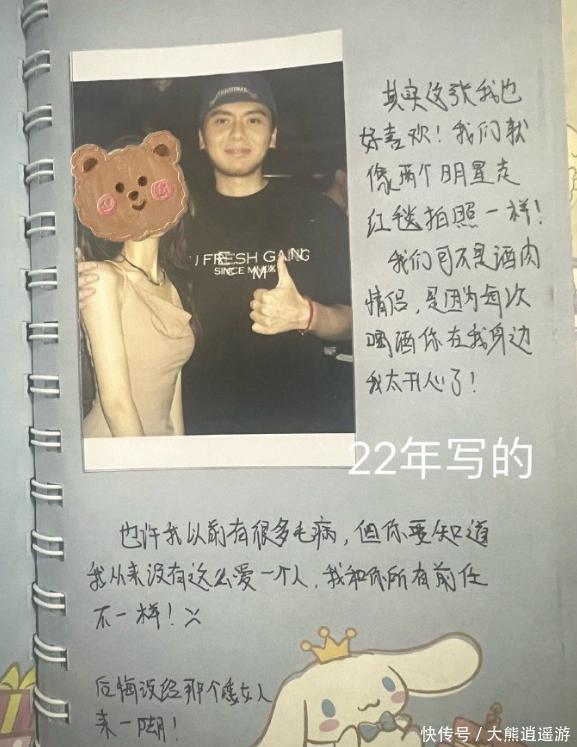 其实这张我也
好喜欢！我们就
像两个明星走
红毯拍照一样！
我们可不是酒肉
情侣，是因为每次
喝酒你在我身边
我太开心了！
FRESH GANG
SINCE
22年写的
也许我以前有很多毛病，但你要知道
我从来没有这么爱一个人，我和你所有前任
不一样！
后悔没给那个矮女人
来一脚！
快传号/大熊逍遥游